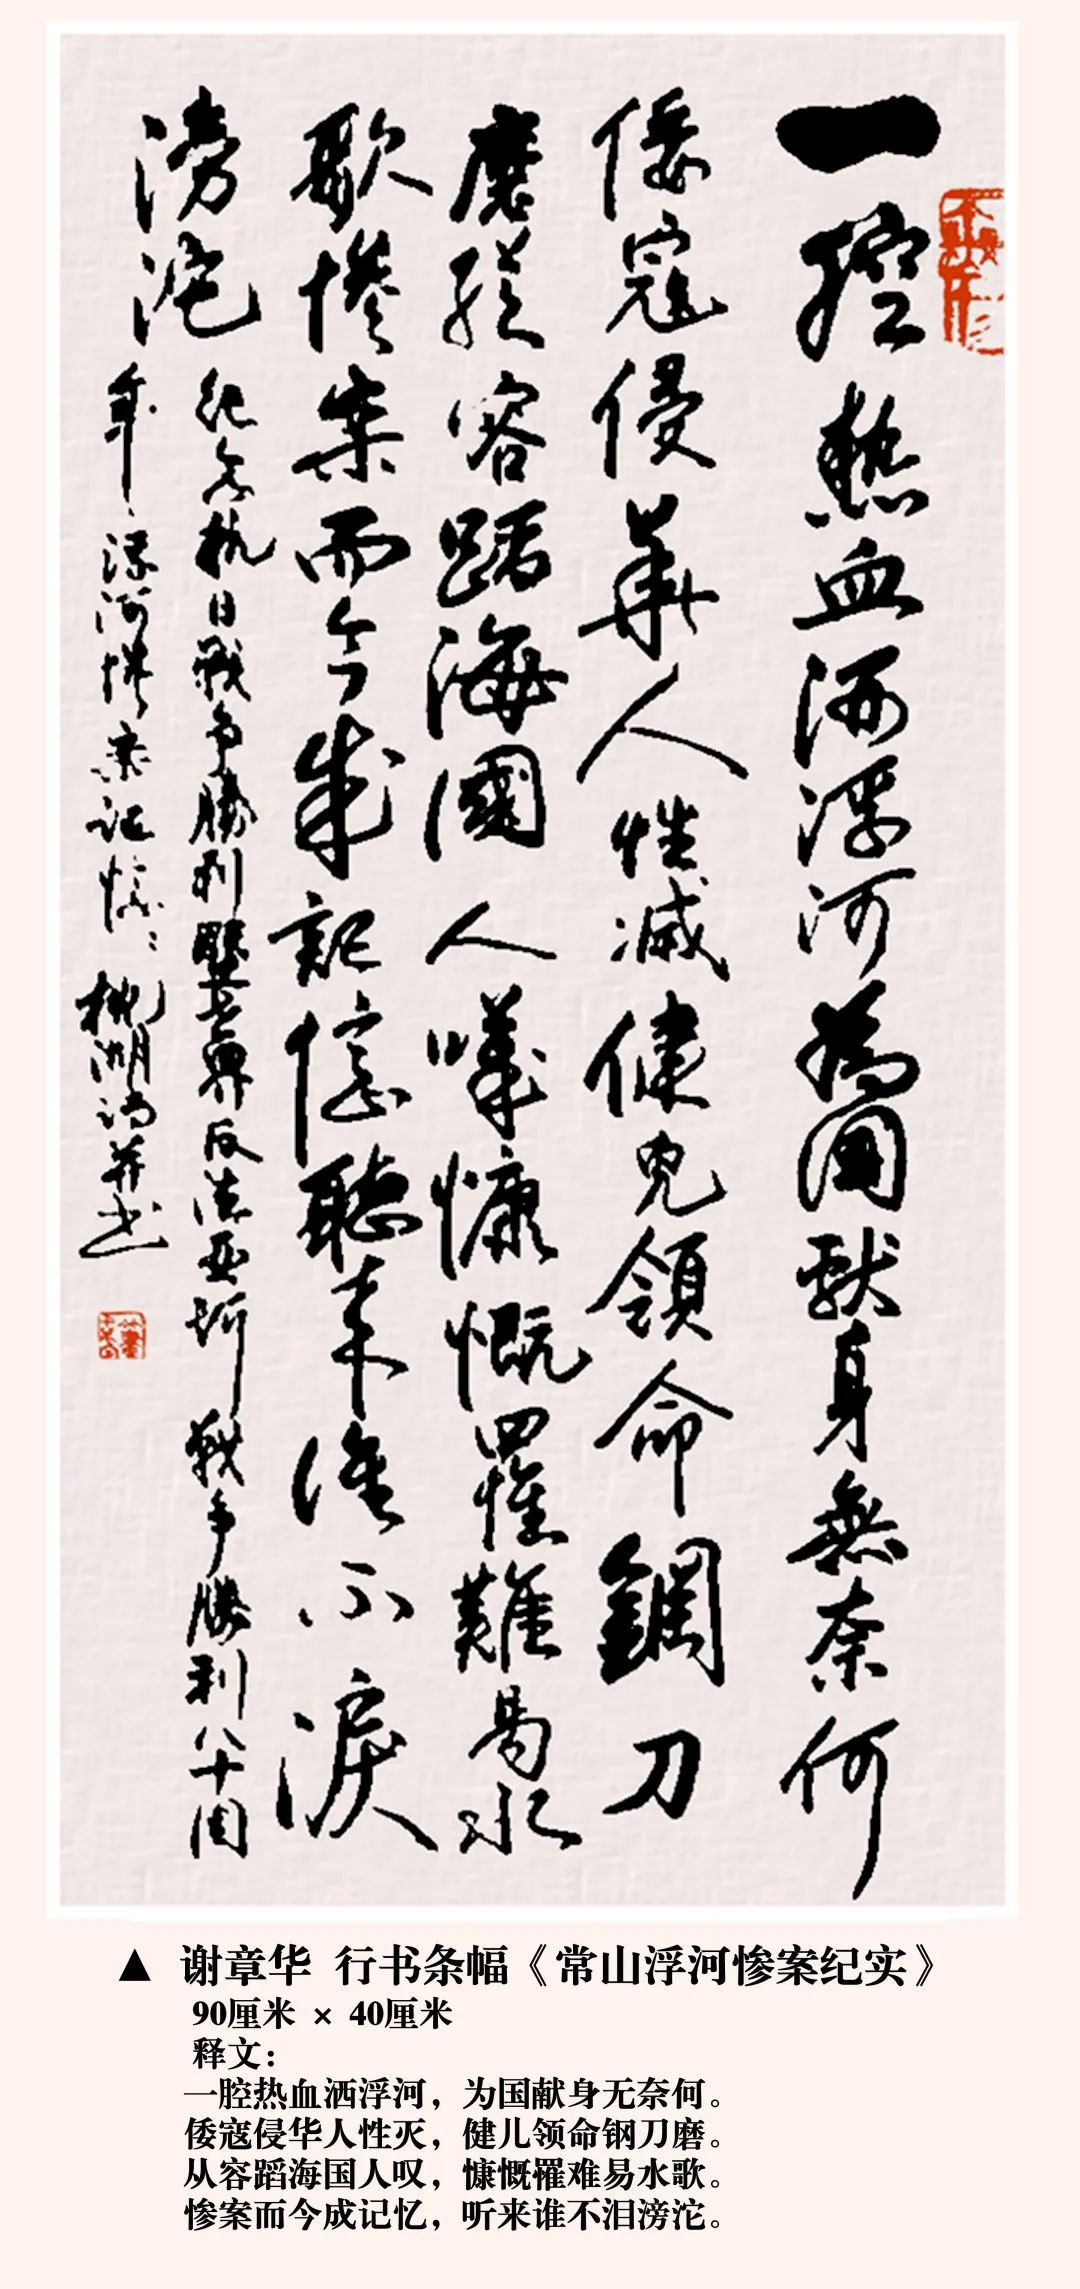 一腔热血洒浮河为国献身無奈何
倭寇侵華人性减健児領命鋼刀
磨從容蹈海國人嘆慷慨罹難易水
歌惨案而今成記憶聽来谁不淚
滂沱
纪念抗日战争勝利暨世界反法西斯战争勝利八十周
年浮河惨案记憶
并书
▲ 谢章华 行书条幅《常山浮河惨案纪实》
90厘米 × 40厘米
释文：
一腔热血洒浮河，为国献身无奈何。
倭寇侵华人性灭，健儿领命钢刀磨。
从容蹈海国人叹，慷慨罹难易水歌。
惨案而今成记忆，听来谁不泪滂沱。